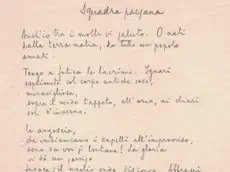 Squadra paesana
Anch'io tra i molti vi saluto. O nati
dalla terra natia, da tutto un popolo
amati.
Tengo a fatica le lacrime. Ignari
esprimete così antiche cose,
meravigliose,
sopra il verde tappeto, all'aria, ai chiari
soli d'inverno.
Le angoscie,
che imbiancano i capelli all'improvviso,
sono da voi sì lontane! La gloria
vi dà un sorriso
fugace: il meglio onde